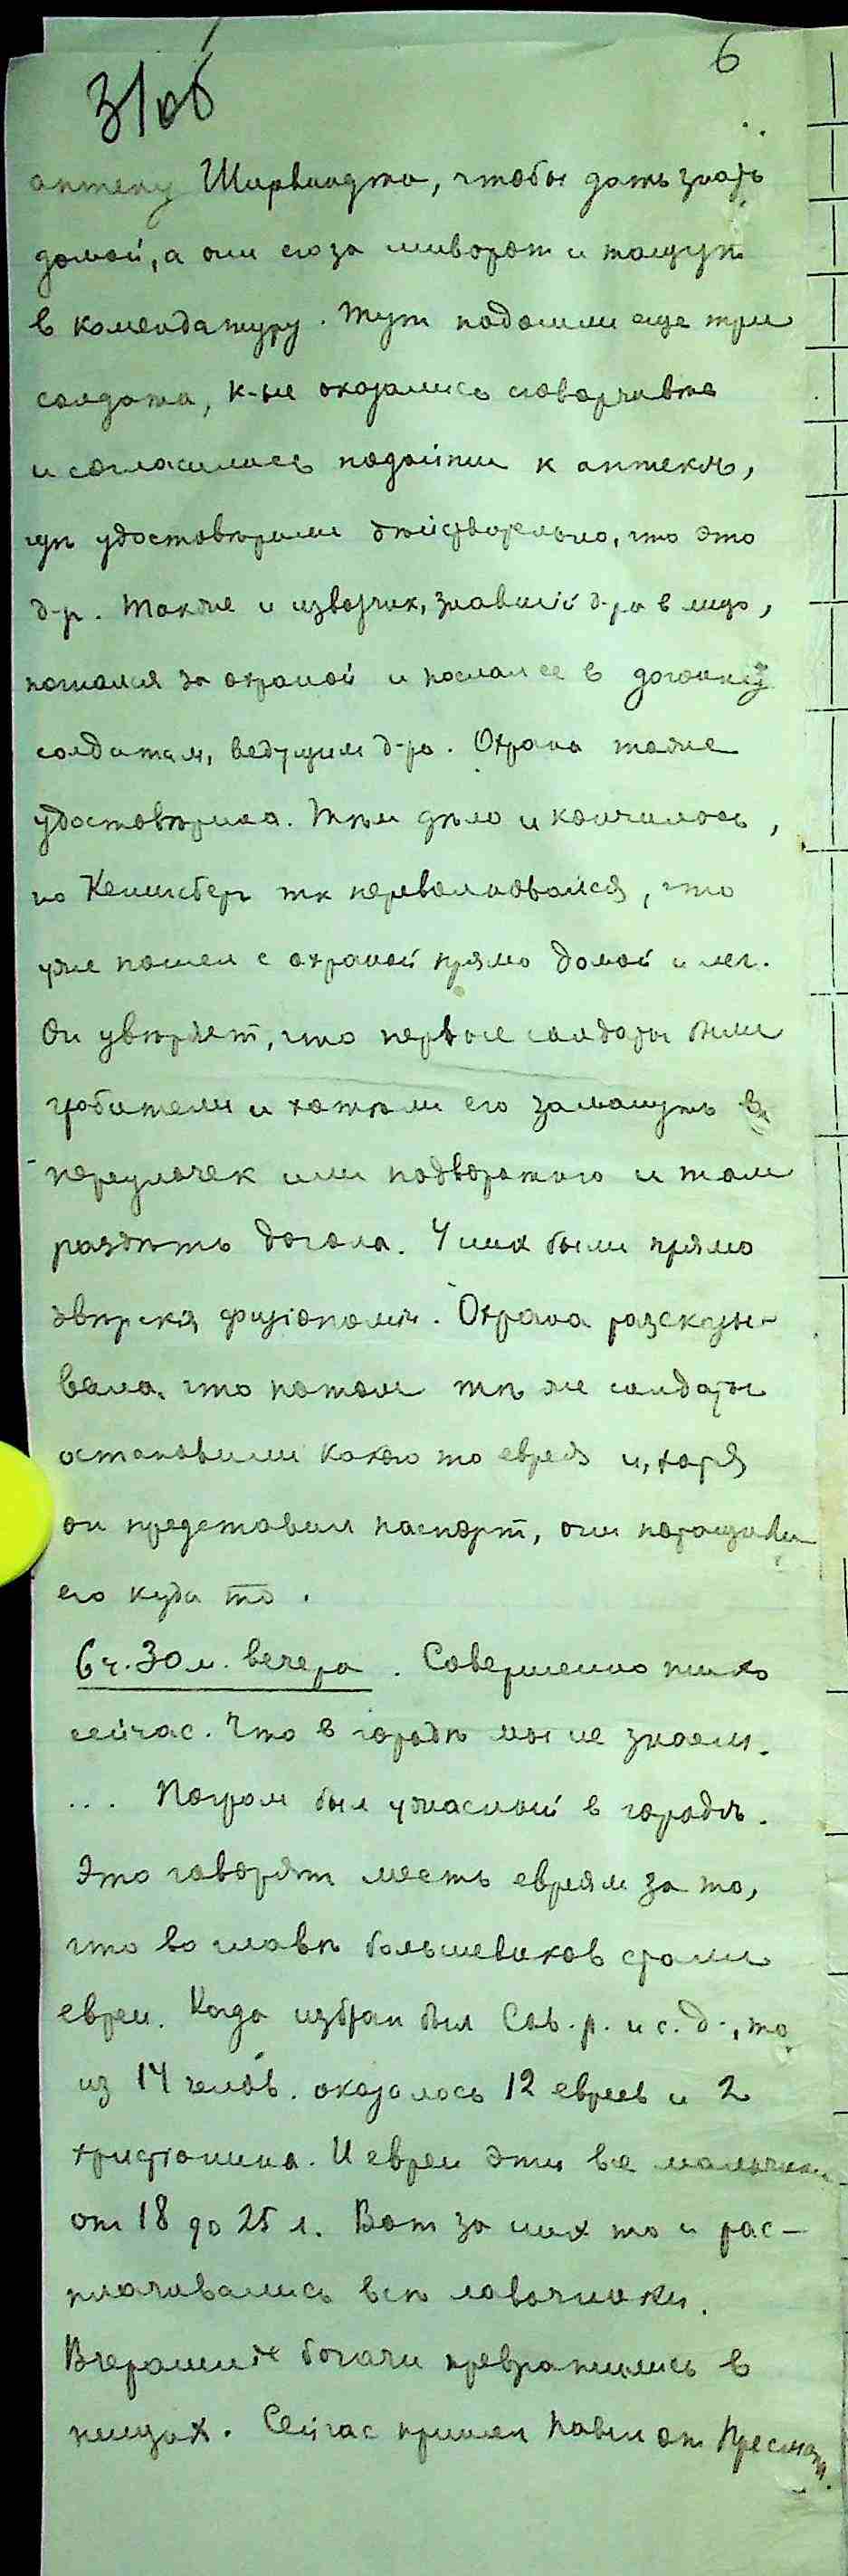 6
3/об
аптеку Ширвиндта, чтобы дать знать
домой, а они его за шиворот и тащут
в комендатуру. Тут подошли еще три
солдата, к-ые оказались сговорчивѣе
и согласились подойти к аптекѣ,
гдѣ удостовѣрили дѣйствительно, что это
д-р. Также и извозчик, знавшій д-ра в лицо,
погнался за охраной и послал ее в догонку
солдатам, ведущим д-ра. Охрана также
удостовѣрила. Тѣм дѣло и кончилось,
но Кенигсберг так переволновался, что
уже пошел с охраной прямо домой и лег.
Он увѣряет, что первые солдаты были
грабители и хотѣли его заманить в
переулочек или подворотню и там
раздѣть догола. У них были прямо
звѣрскія физіономіи. Охрана разсказы-
вала, что потом тѣ же солдаты
остановили какого то еврея и, хотя
он представил паспорт, они потащили
его куда то.
6 ч. 30 м. вечера. Совершенно тихо
сейчас. Что в городѣ мы не знаем.
... Погром был ужасный в городѣ.
Это говорят месть евреям за то,
что во главѣ большевиков стали
евреи. Когда избран был Сов. р. и с. д., то
из 14 челов. оказалось 12 евреев и 2
христіанина. И евреи эти все мальчики
от 18 до 25 л. Вот за них то и рас-
плачивались всѣ лавочники.
Вчерашніе богачи превратились в
нищих. Сейчас пришел Павел от